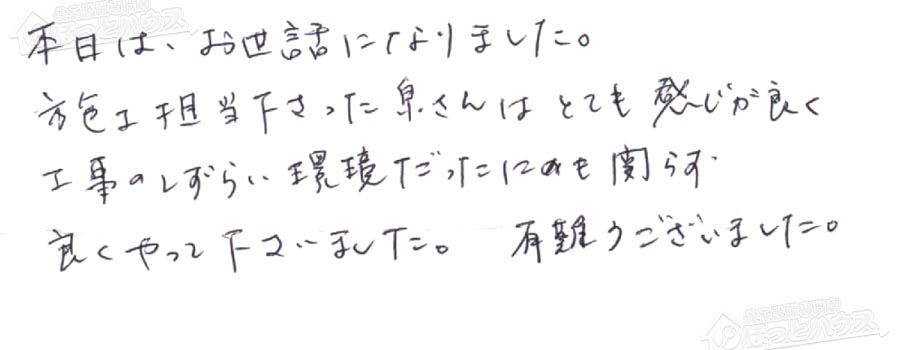 本日は、お世話になりました。
施工担当下さった泉さんはとても感じが良く
工事のしずらい環境だったにのも関らず
良くやって下さいました。 有難うございました。
ほっとハウス
ほっとハウス